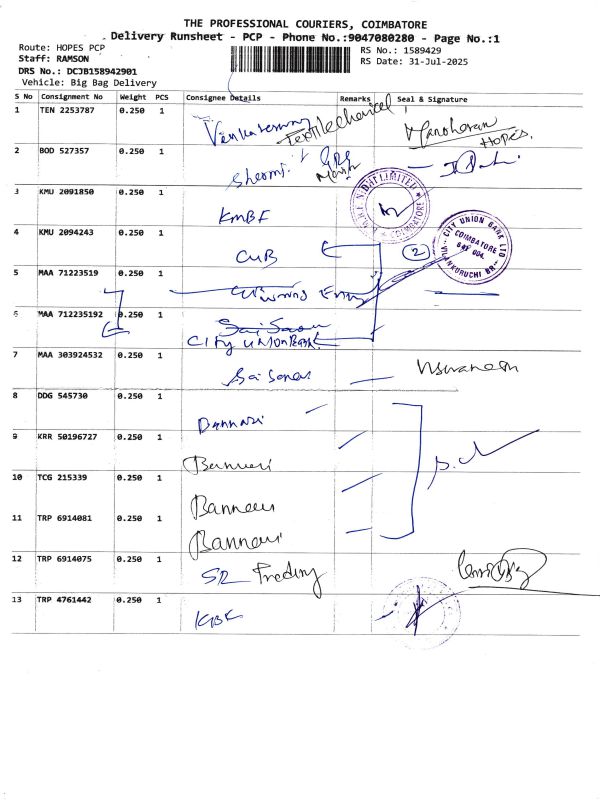 THE PROFESSIONAL COURIERS, COIMBATORE
Delivery Runsheet - PCP - Phone No.:9047080280 - Page No.:1
Route: HOPES PCP
RS No.: 1589429
Staff: RAMSON
RS Date: 31-Jul-2025
DRS No.: DCJB158942901
Vehicle: Big Bag Delivery
S No Consignment No Weight PCS Consignee Details Remarks Seal & Signature
1 TEN 2253787 0.250 1 Textilechemical Manoharan
Hopes.
2 BOD 527357 0.250 1
3 KMU 2091850 0.250 1 KMBF
LIMITED
COIMBATORE
4 KMU 2094243 0.250 1 CUB 2
CITY UNION BANK LTD
COIMBATORE
5 MAA 71223519 0.250 1
6 MAA 712235192 0.250 1
CITY UNION BANK
7 MAA 303924532 0.250 1
8 DDG 545730 0.250 1 Bannari
9 KRR 50196727 0.250 1 Bannari
10 TCG 215339 0.250 1 Bannari
11 TRP 6914081 0.250 1 Bannari
12 TRP 6914075 0.250 1 Trading
13 TRP 4761442 0.250 1